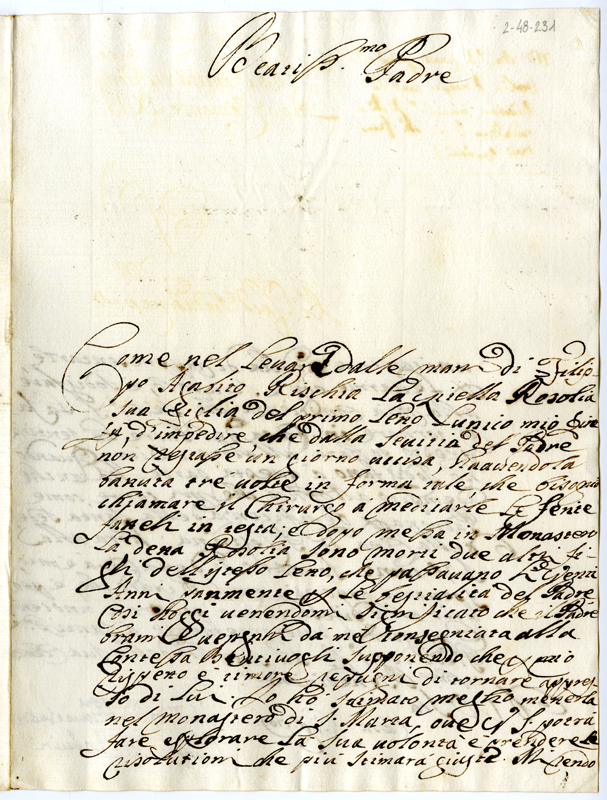 2-48-231
Beatiss.mo Padre
Come nel levar dalle mani di Filip
po Agapito Rischia la Zitella Rosolia
sua figlia del primo letto l'unico mio fine
fu, d'impedire che dalla sevitia del Padre
non restasse un giorno uccisa, havendola
batuta tre volte in forma tale che bisognò
chiamare il Chirurgo à mediarle le ferite
fateli in testa; e dopo messa in Monastero
la detta Rosolia sono morti due altri fi-
gli dell'istesso letto, che passavano li venti
Anni per le bestialità del Padre
Così hoggi venendomi significato che il Padre
da me consegniata alla
Contessa Bentivogli supponendo che
rispetto e timore di tornare appres
so di lui Io hò stimato meglio metterla
nel monastero di S. Marta, ove si potrà
fare esplorare la sua volontà e prendere le
risolutioni che più stimarà giuste.